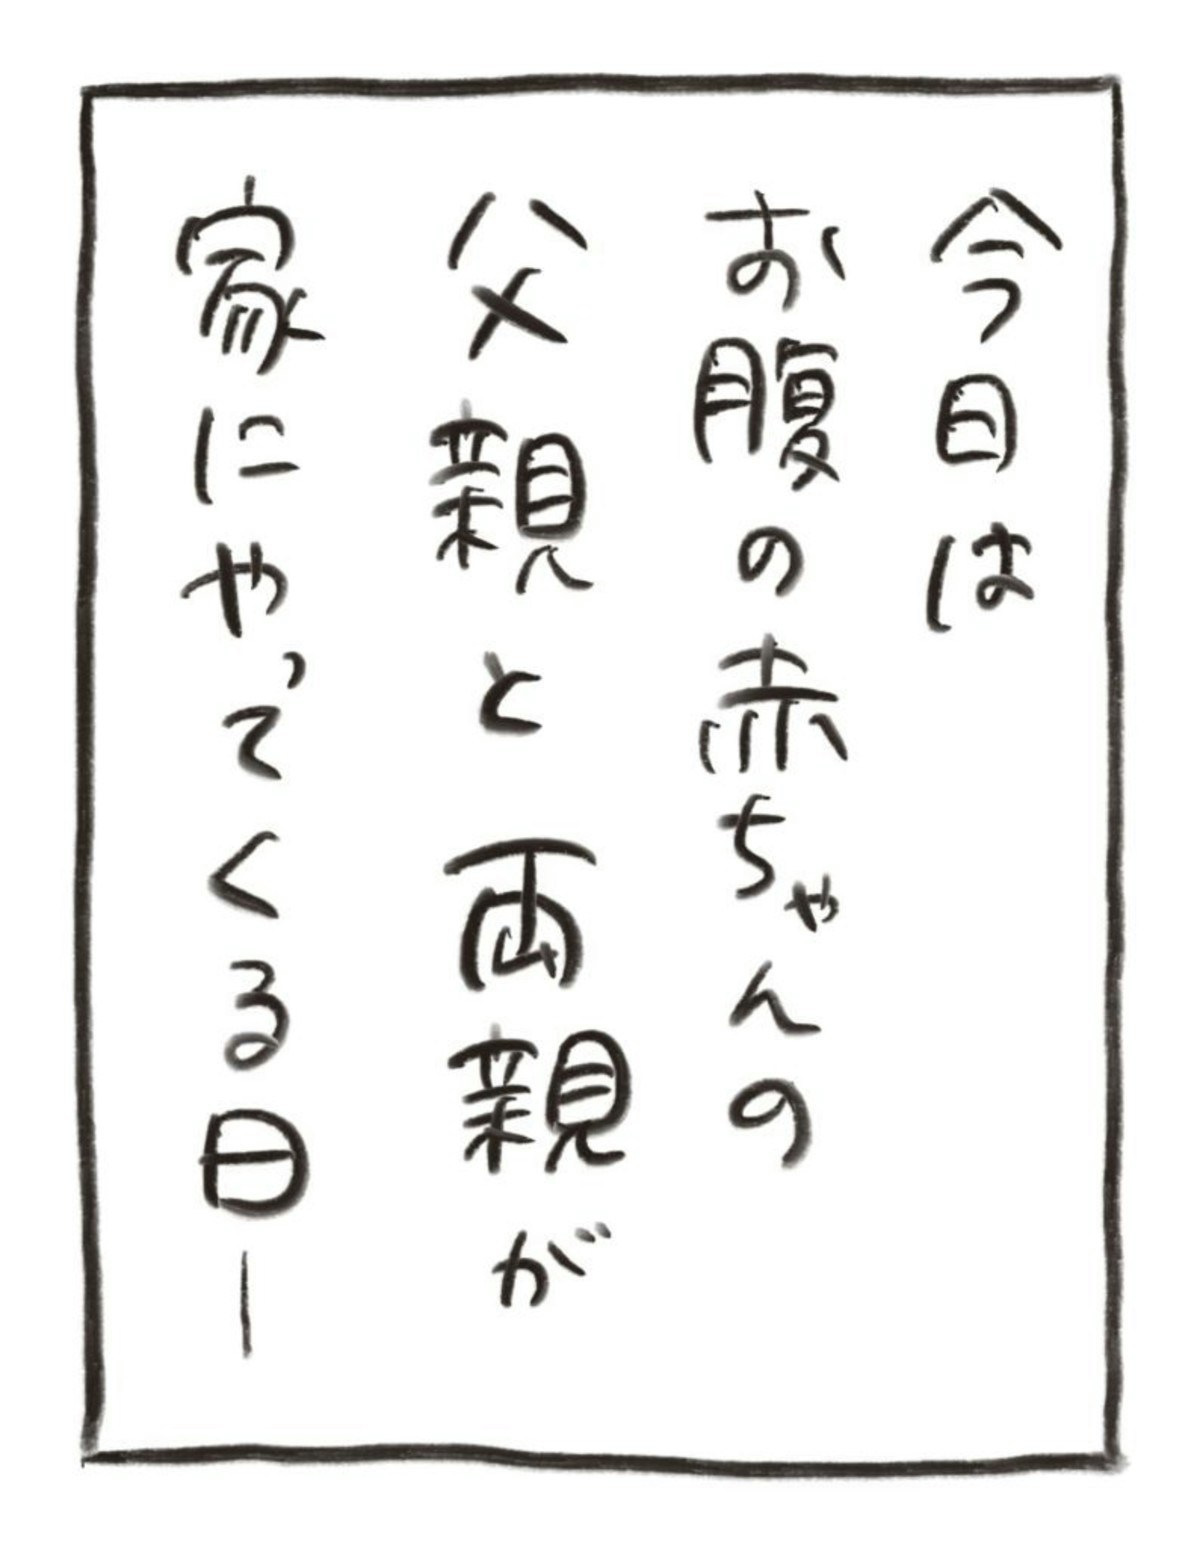 今日は
お腹の赤ちゃんの
父親と両親が
家にやってくる日―